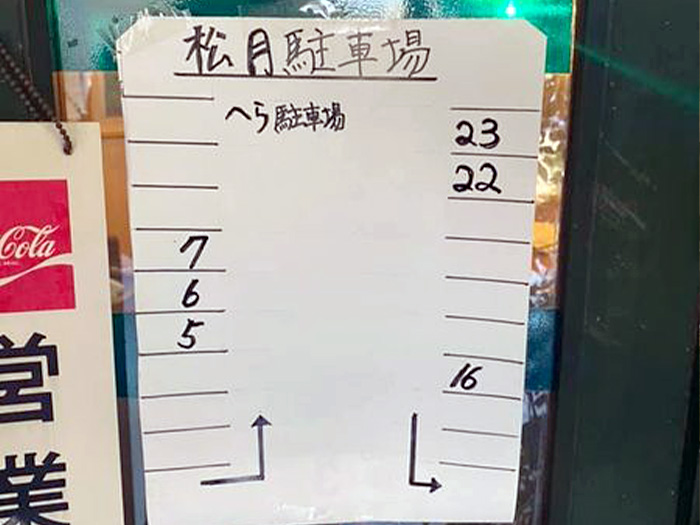 松月駐車場
へら駐車場
23
22
7
6
5
16
Cola
営業